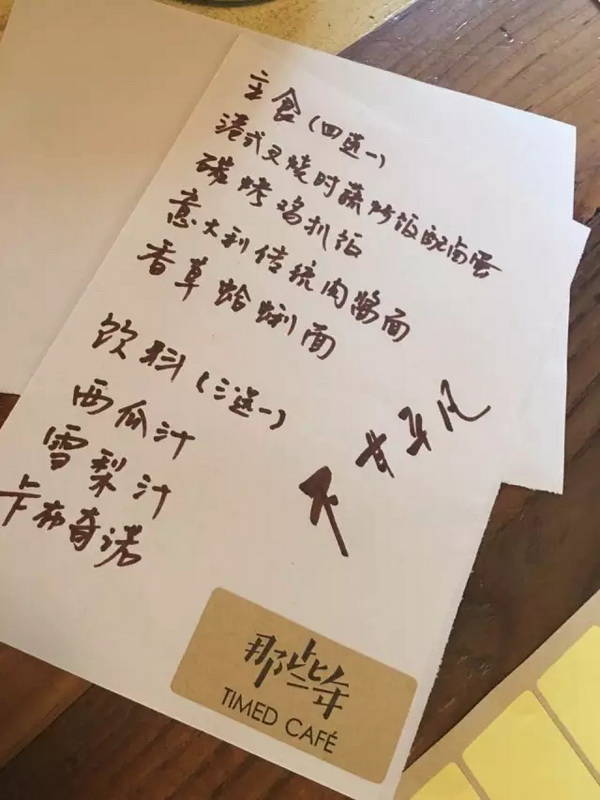 主食（四选一）
港式叉烧时蔬炒饭配卤蛋
碳烤鸡扒饭
意大利传统肉酱面
香草蛤蜊面
饮料（三选一）
西瓜汁
雪梨汁
卡布奇诺
不甘平凡
那些年
TIMED CAFÉ